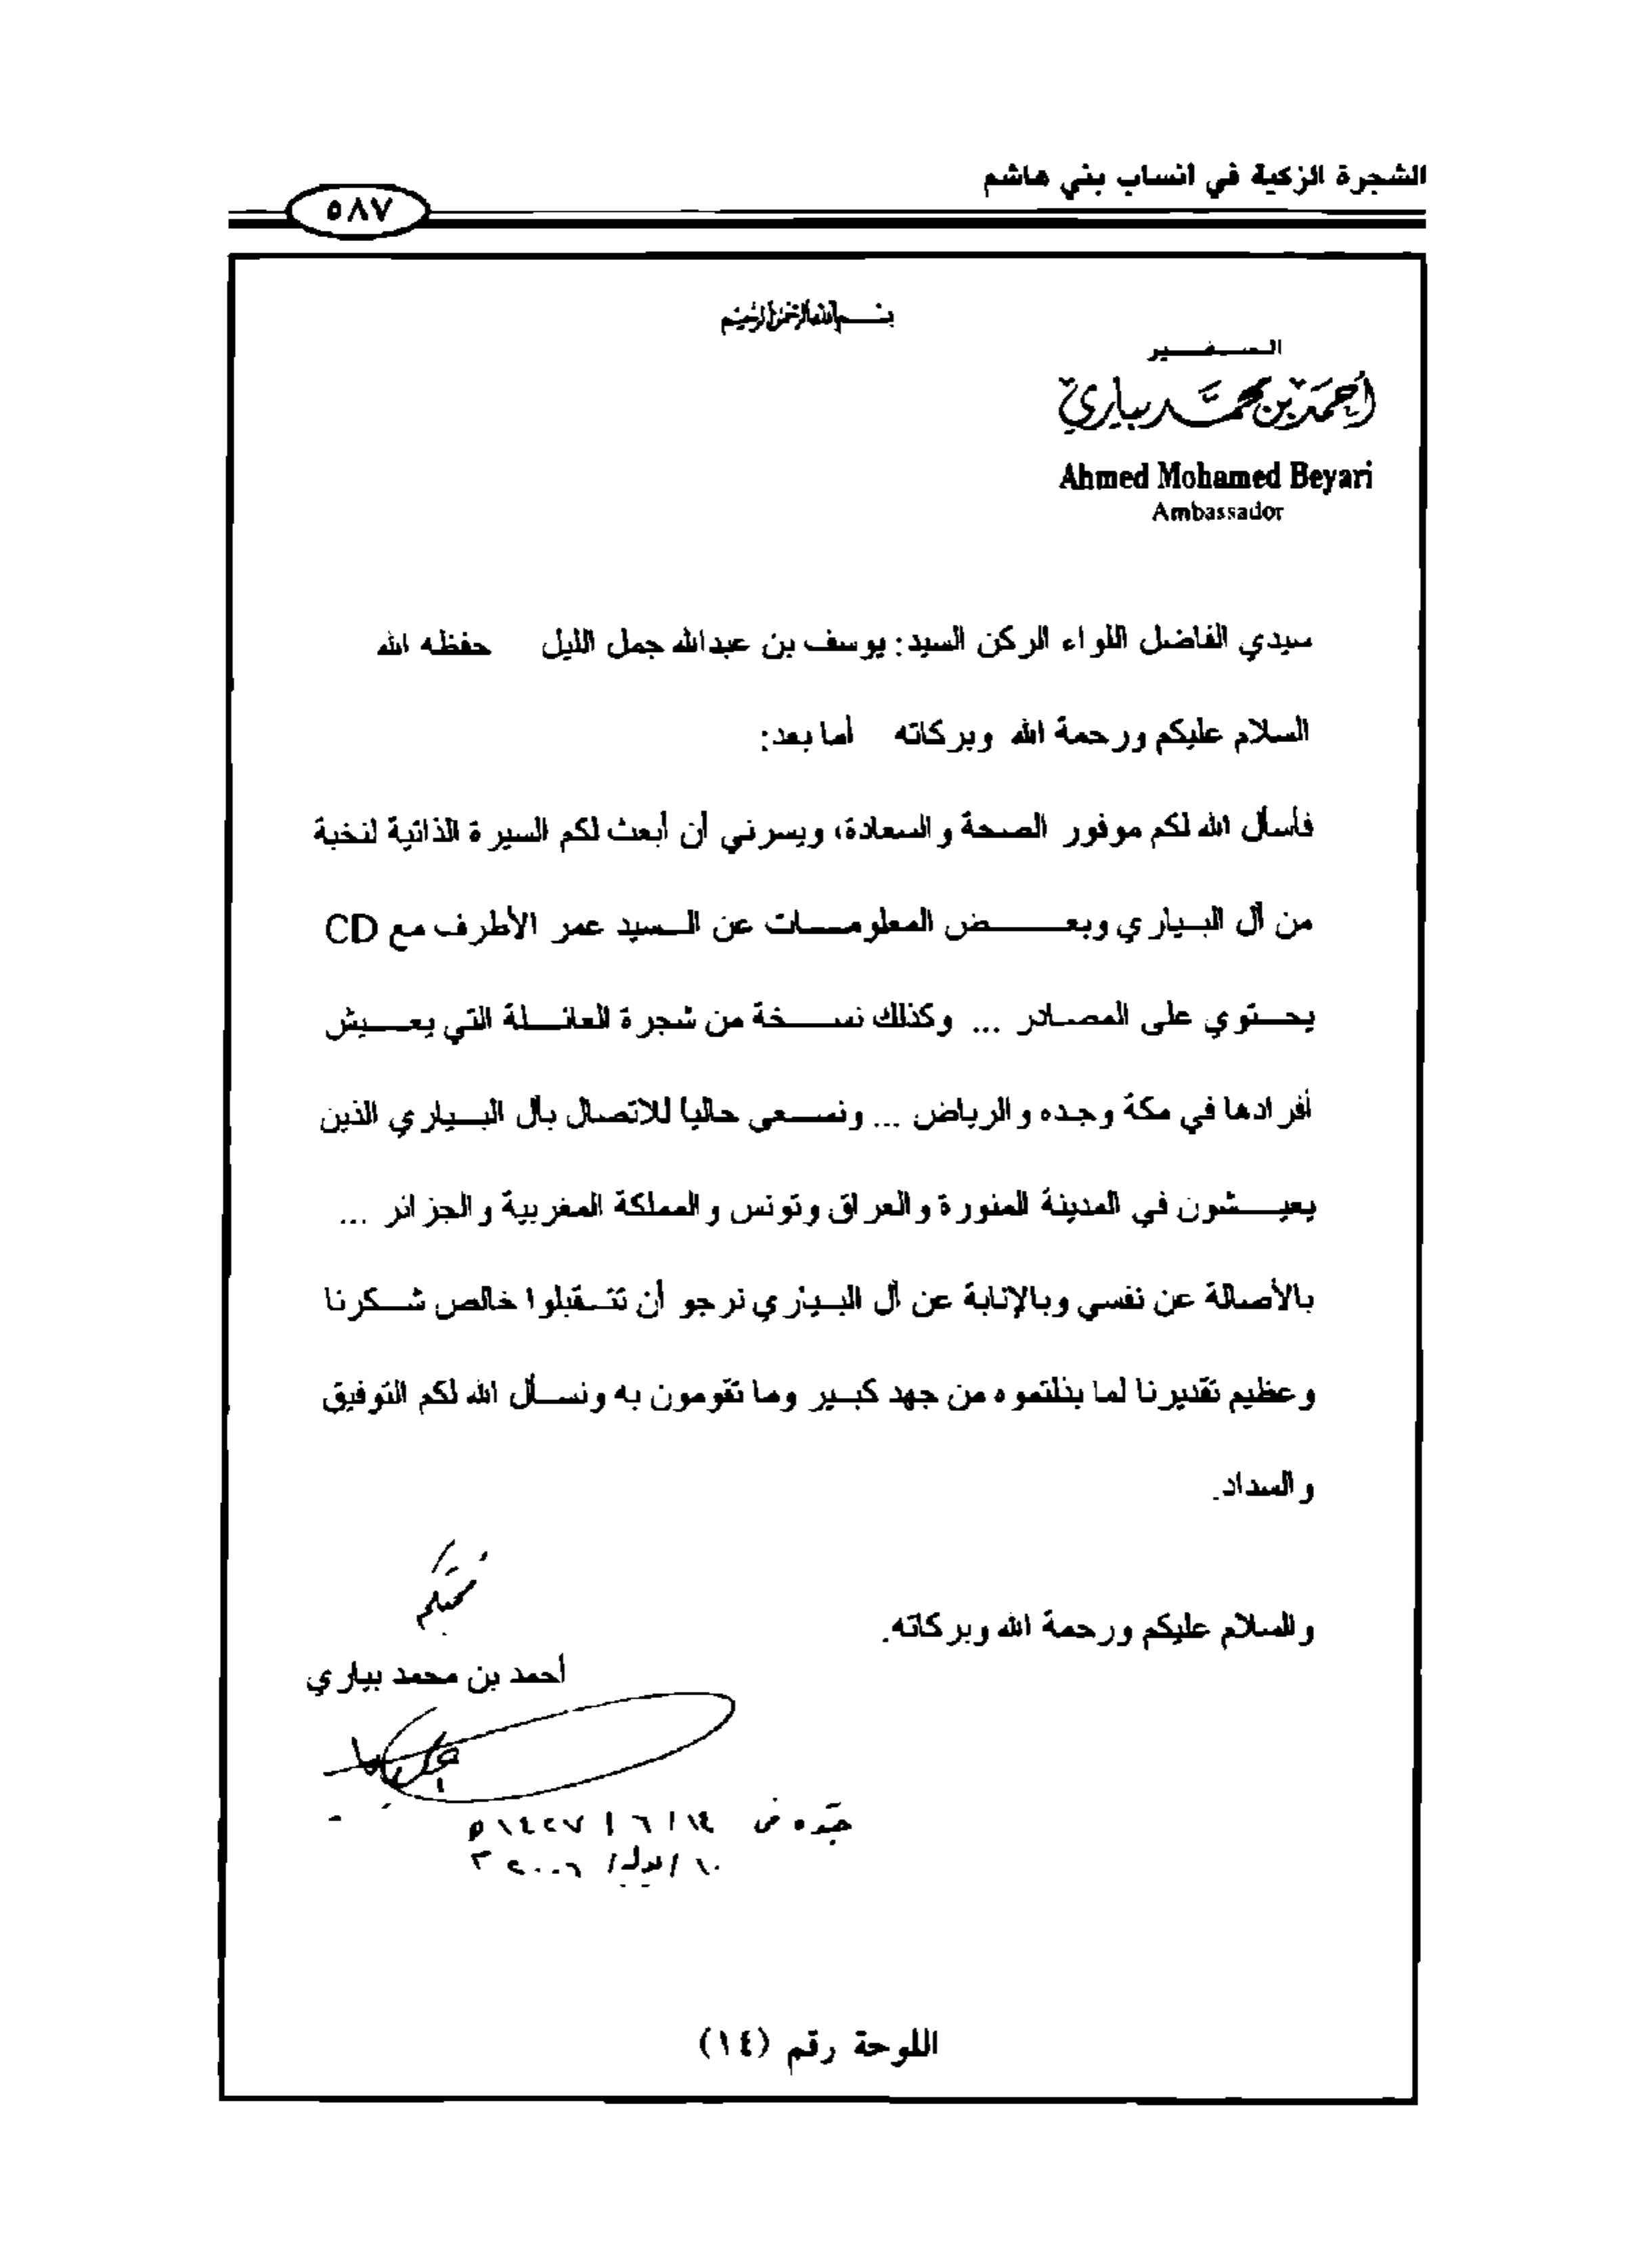 الشجرة الزكية في انساب بني هاشم
٥٨٧
بسم الله الرحمن الرحيم
السفير
أحمد بن محمد بياري
Ahmed Mohamed Beyari
Ambassador
سيدي الفاضل اللواء الركن السيد: يوسف بن عبدالله جمل الليل حفظه الله
السلام عليكم ورحمة الله وبركاته أما بعد:
فأسأل الله لكم موفور الصحة والسعادة، ويسرني أن أبعث لكم السيرة الذاتية لنخبة
من آل البياري وبعض المعلومات عن السيد عمر الأطرف مع CD
يحتوي على المصادر ... وكذلك نسخة من شجرة العائلة التي يعيش
أفرادها في مكة وجده والرياض ... ونسعى حاليا للاتصال بآل البياري الذين
يعيشون في المدينة المنورة والعراق وتونس والمملكة المغربية والجزائر ...
بالأصالة عن نفسي وبالإنابة عن آل البياري نرجو أن تتقبلوا خالص شكرنا
وعظيم تقديرنا لما بذلتموه من جهد كبير وما تقومون به ونسأل الله لكم التوفيق
والسداد.
والسلام عليكم ورحمة الله وبركاته.
محبكم
أحمد بن محمد بياري
جده في ١٤ / ٦ / ١٤٢٧ ه
١٠ / يوليه / ٢٠٠٦ م
اللوحة رقم (١٤)